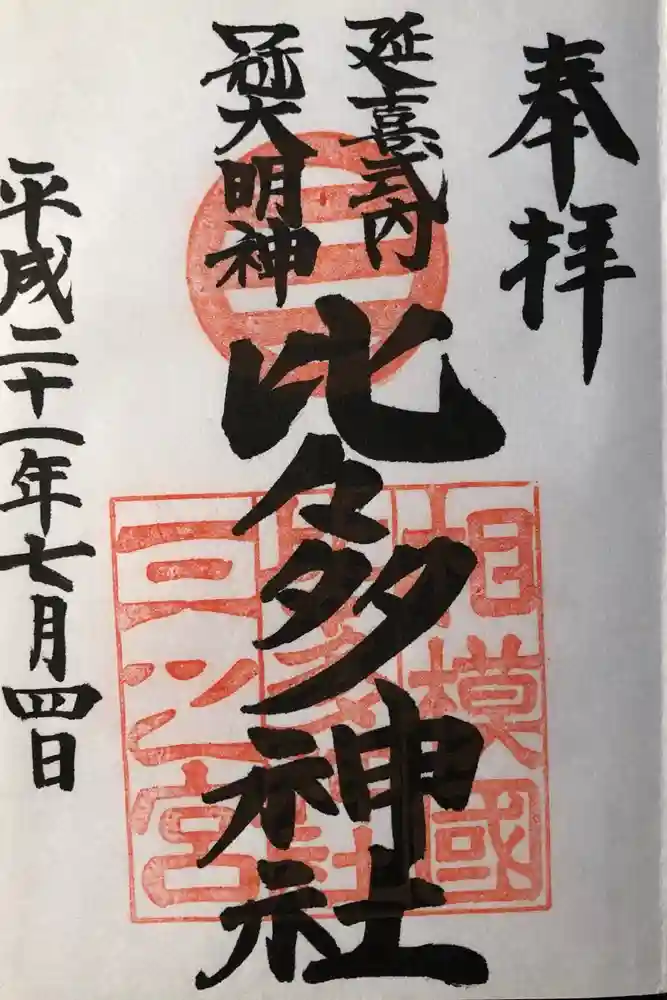 奉拝
延喜式内
冠大明神
比々多神社
平成二十一年七月四日
相模國
比々多神社
三之宮